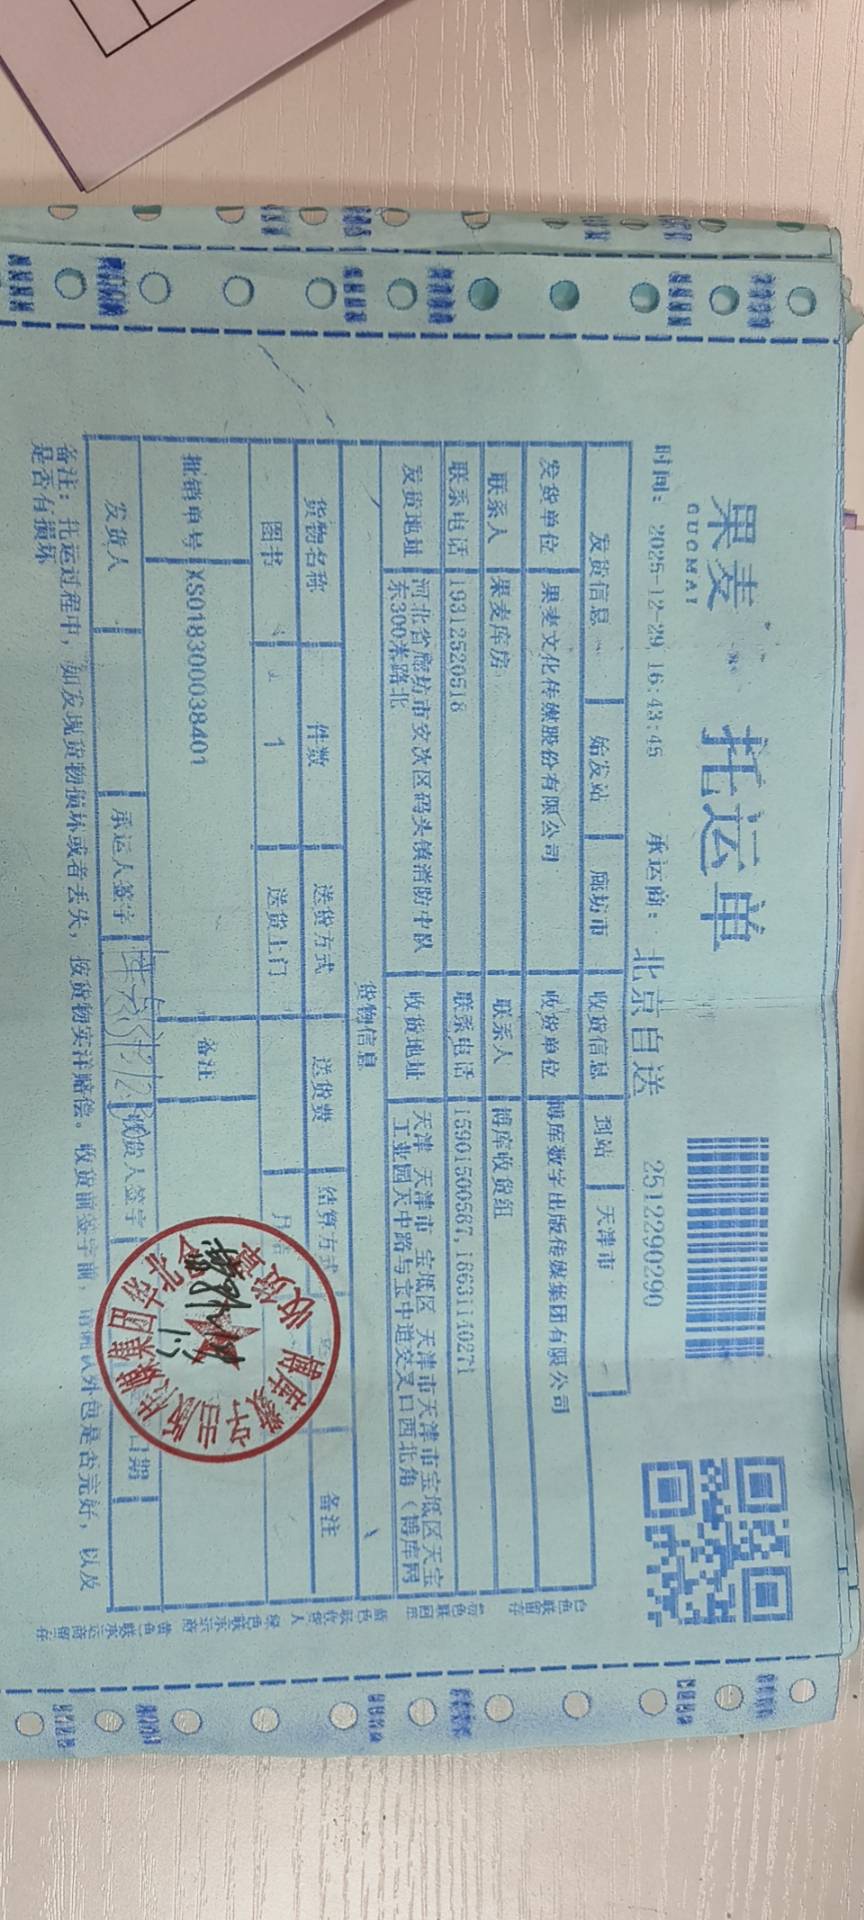 果麦
GUOMAI
托运单
时间： 2025-12-29 16:43:45 承运商： 北京自送 2512290290
发货信息 始发站 廊坊市 收货信息 到站 天津市
发货单位 果麦文化传媒股份有限公司 收货单位 博库数字出版传媒集团有限公司
联系人 果麦库房 联系人 博库收货组
联系电话 19312520518 联系电话 15901500587,18631140271
发货地址 河北省廊坊市安次区码头镇消防中队 收货地址 天津 天津市 宝坻区 天津市天津市宝坻区天宝
东300米路北 工业园天中路与宝中道交叉口西北角（博库网
货物信息
货物名称 件数 送货方式 送货费 结算方式 备注
图书 1 送货上门 月结
批销单号 XS018300038401 备注
发货人 承运人签字 收货人签字 日期
备注：托运过程中，如发现货物损坏或者丢失，按货物实洋赔偿。收货前签字前，请确认外包是否完好，以及
是否有损坏
白色联留存 粉色联回单 蓝色联收货人 绿色联承运商 黄色联承运商留存
收货章